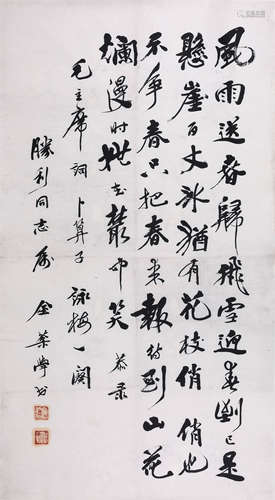 風雨送春歸飛雪迎春到已是
懸崖百丈冰猶有花枝俏俏也
不爭春只把春來報待到山花
爛漫時她在叢中笑 恭录
毛主席詞卜算子 詠梅一闋
勝利同志屬